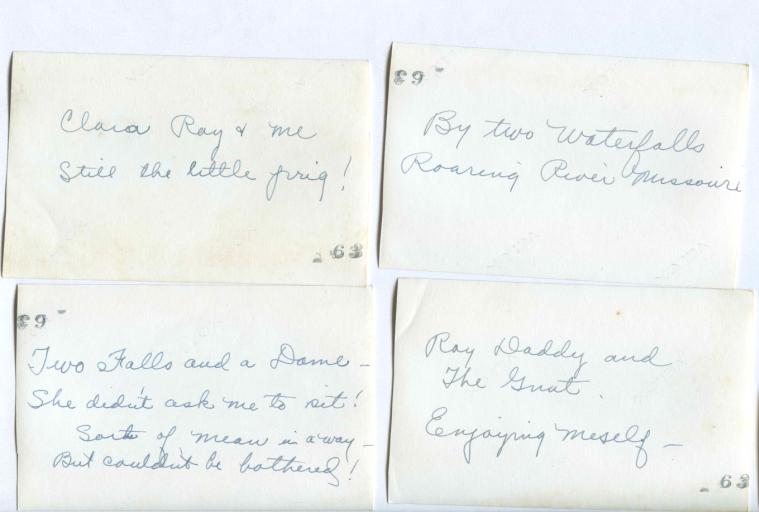 Clara Ray & me
Still the little prig!
63
63
By two Waterfalls
Roaring River Missouri
63
Two Falls and a Dame -
She didn't ask me to sit!
Sorta of mean in a way -
But couldn't be bothered!
Ray Daddy and
The Gnat.
Enjoying meself -
63